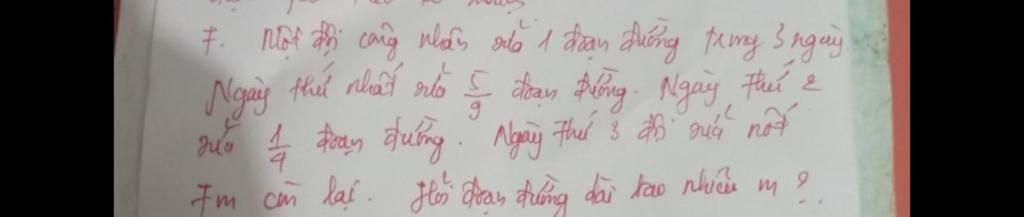 7. Một đội công nhân sửa 1 đoạn đường trong 3 ngày
Ngày thứ nhất sửa 5/9 đoạn đường. Ngày thứ 2
sửa 1/4 đoạn đường. Ngày thứ 3 đội sửa nốt
7m còn lại. Hỏi đoạn đường dài bao nhiêu m?